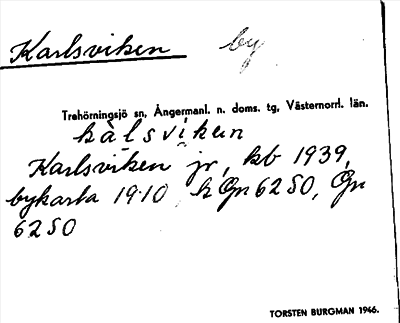 Karlsviken by
Trehörningsjö sn, Ångermanl. n. doms. tg, Västernorrl. län.
kàlsvìken
Karlsviken jr, kb 1939,
bykarta 1910, k Gn 6250, Gn
6250
TORSTEN BURGMAN 1946.